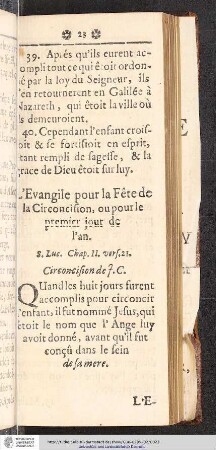 * 23 *
39. Aprés qu'ils eurent ac-
ompli tout ce qui étoit ordon-
é par la loy du Seigneur, ils
'en retournerent en Galilée à
Nazareth, qui étoit la ville où
ls demeuroient.
40. Cependant l'enfant crois-
oit & se fortifioit en esprit,
tant rempli de sagesse, & la
race de Dieu étoit sur luy.
L'Evangile pour la Fête de
la Circoncision, ou pour le
premier jour de
l'an.
S. Luc. Chap. II. vers. 21.
Circoncision de J. C.
QUand les huit jours furent
accomplis pour circoncir
l'enfant, il fut nommé Jesus, qui
étoit le nom que l'Ange luy
avoit donné, avant qu'il fut
conçû dans le sein
de sa mere.
L'E-